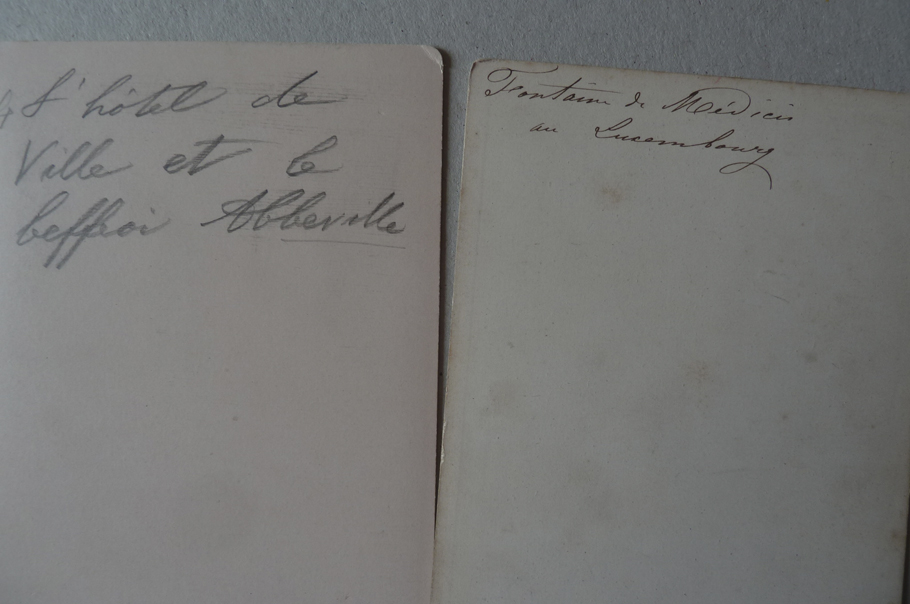 L'hôtel de
Ville et le
beffroi Abbeville
Fontaine de Médicis
au Luxembourg